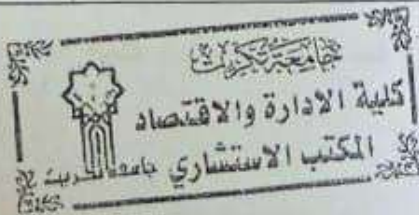 جامعة تكريت
كلية الادارة والاقتصاد
المكتب الاستشاري
جامعة تكريت